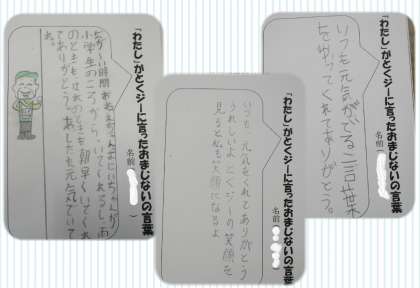 「わたし」がとくジーに言ったおまじないの言葉
名前(
いつも元気がでる言葉
をゆってくれてありがとう。
「わたし」がとくジーに言ったおまじないの言葉
名前
いつも、元気をくれてありがとう
うれしいよとくジーの笑顔を
見ると私も笑顔になるよ
「わたし」がとくジーに言ったおまじないの言葉
名前( )
時間
小学生のころからいてくれるし、雨
のときも のときも朝早くいてくれ
てありがとう。あしたも元気でいて
ね。